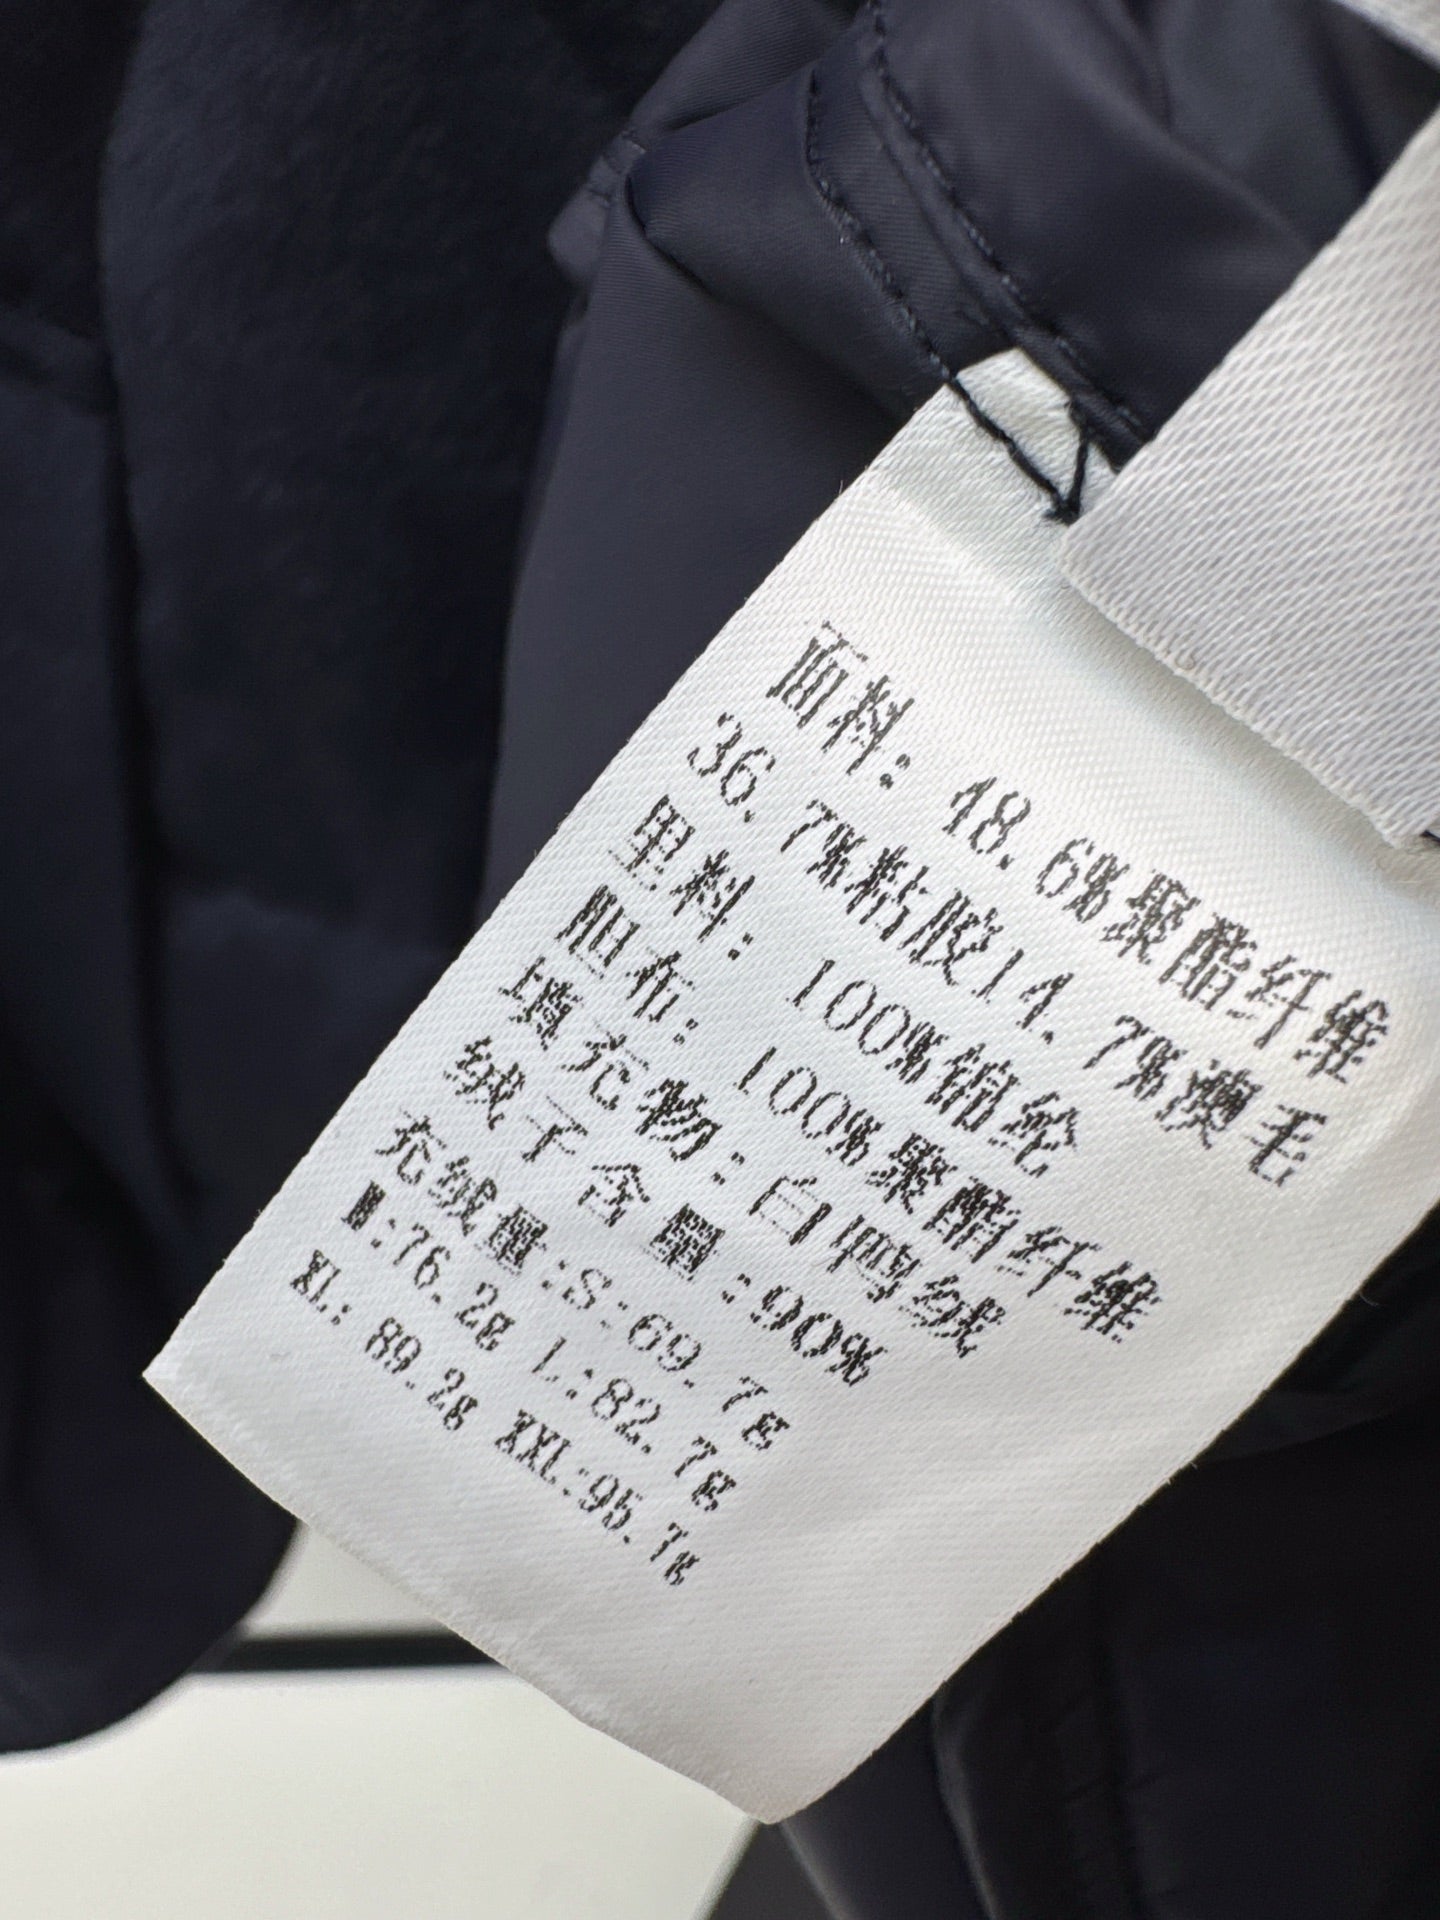 面料: 48.6%聚酯纤维
36.7%粘胶14.7%澳毛
里料: 100%锦纶
胆布: 100%聚酯纤维
填充物:白鸭绒
绒子含量:90%
充绒量:S:69.7g
M:76.2g L:82.7g
XL: 89.2g XXL:95.7g